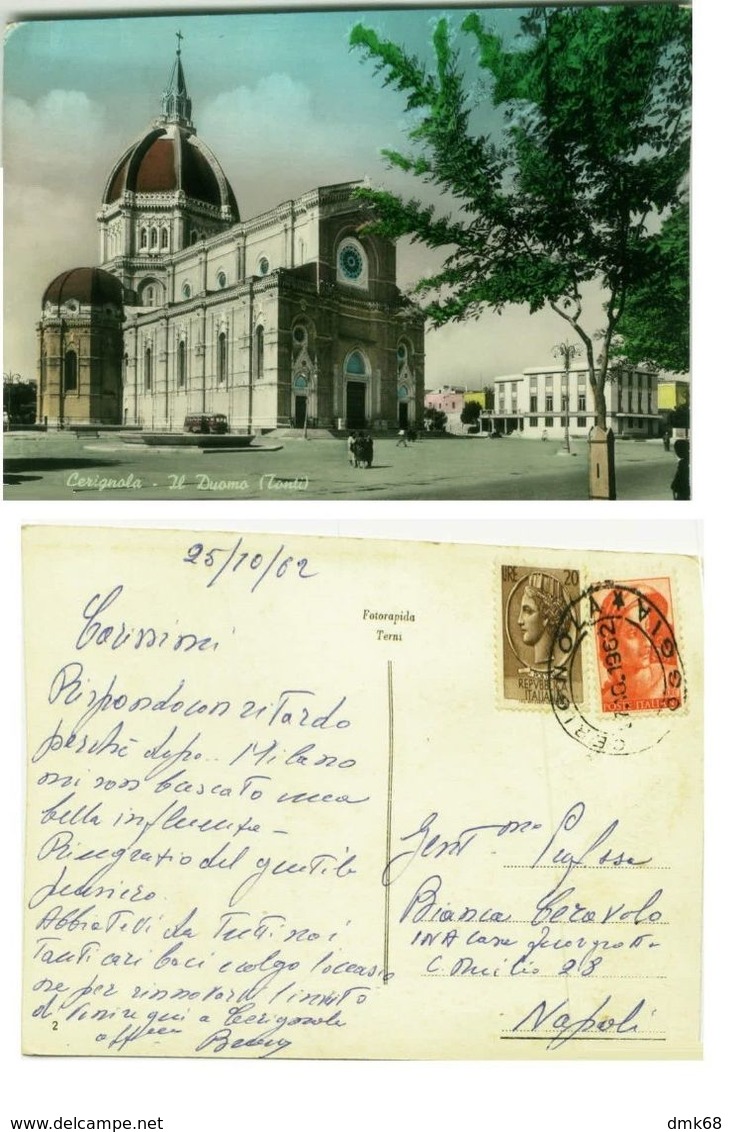 Cerignola - Il Duomo (Tonti)
25/10/62
Carissimi
Rispondo con ritardo
perché dopo.. Milano
mi son buscato una
bella influenza -
Ringrazio del gentile
pensiero.
Abbiatevi da tutti noi
tanti cari baci e colgo l'occasio
ne per rinnovare l'invito
di venire qui a Cerignola
aff
2
Fotorapida
Terni
LIRE 20
REPUBBLICA
ITALIANA
POSTE ITALIANE
CERIGNOLA ★ FOGGIA
.10.1962
Gent.ma Prof.ssa
Bianca Ceravolo
INA Casa
28
Napoli
delcampe.net
dmk68